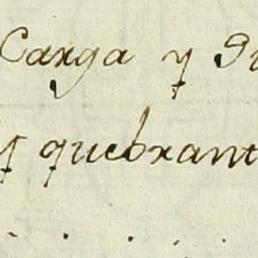 Carga y
y quebrant